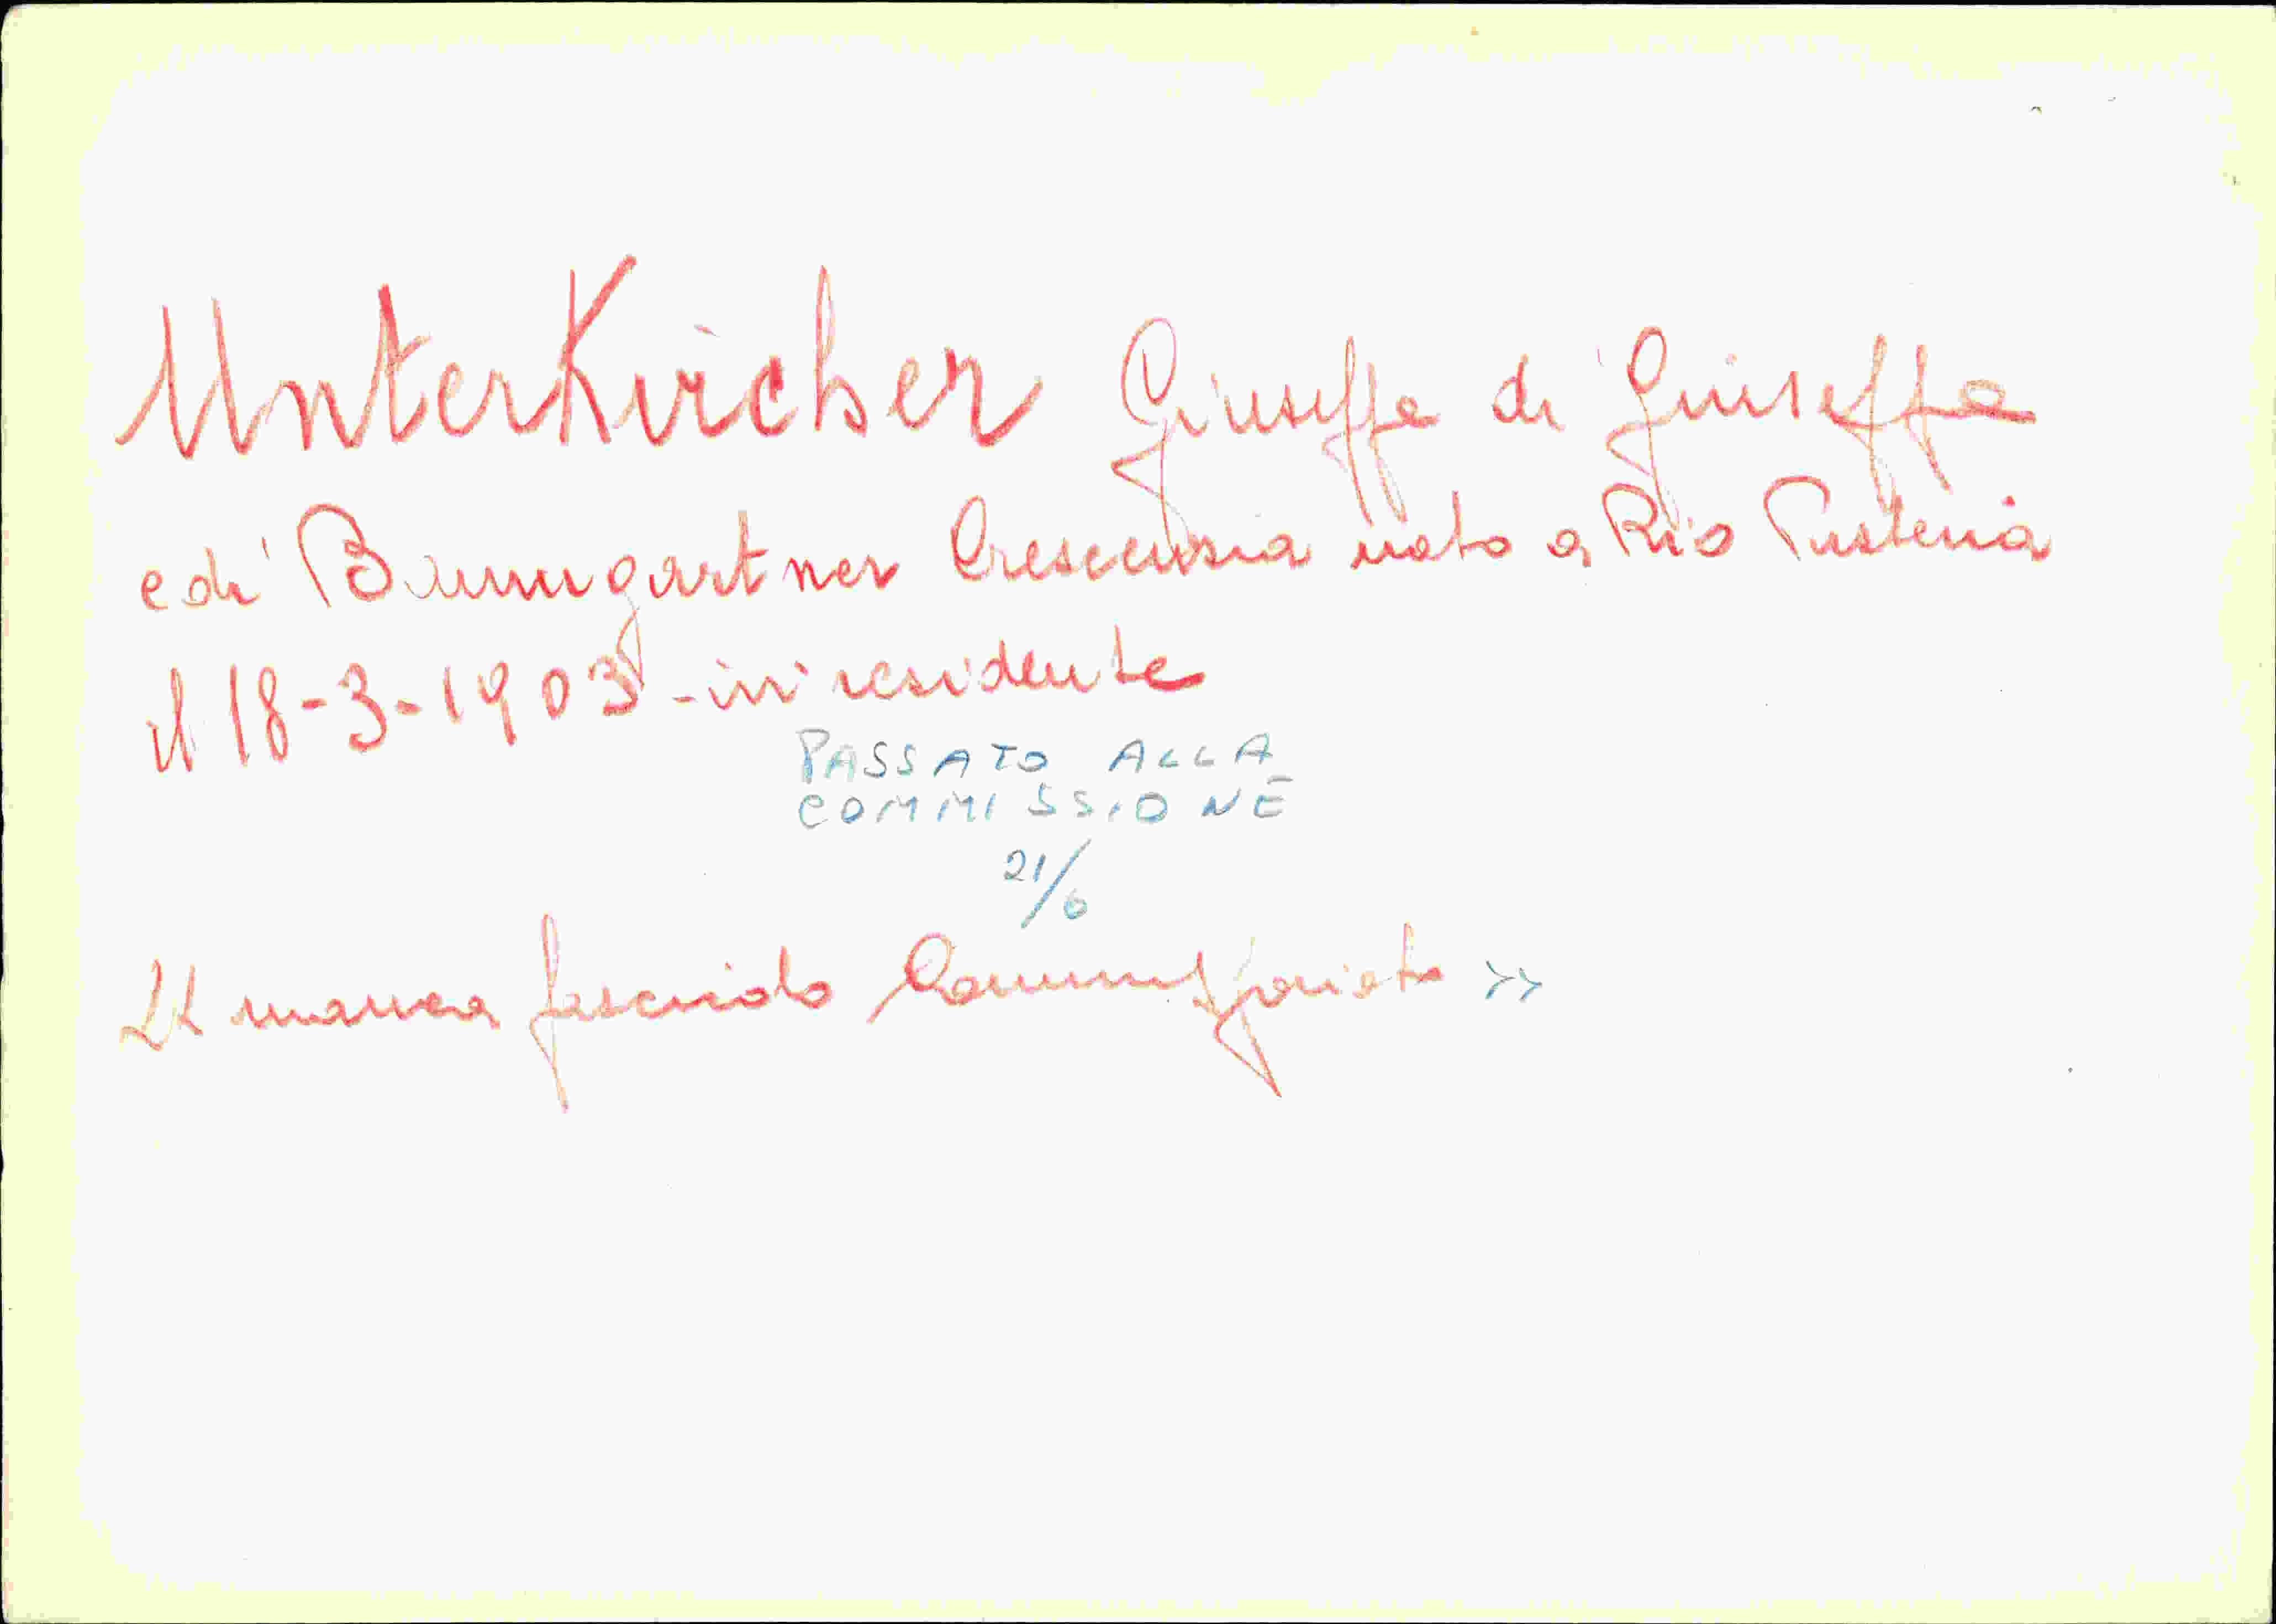 UnterKircher Giuseppe di Giuseppe
e di Baumgartner Crescenzia nato a Rio Pusteria
il 18-3-1903 - ivi residente
PASSATO ALLA
COMMISSIONE
21/6
manca fascicolo